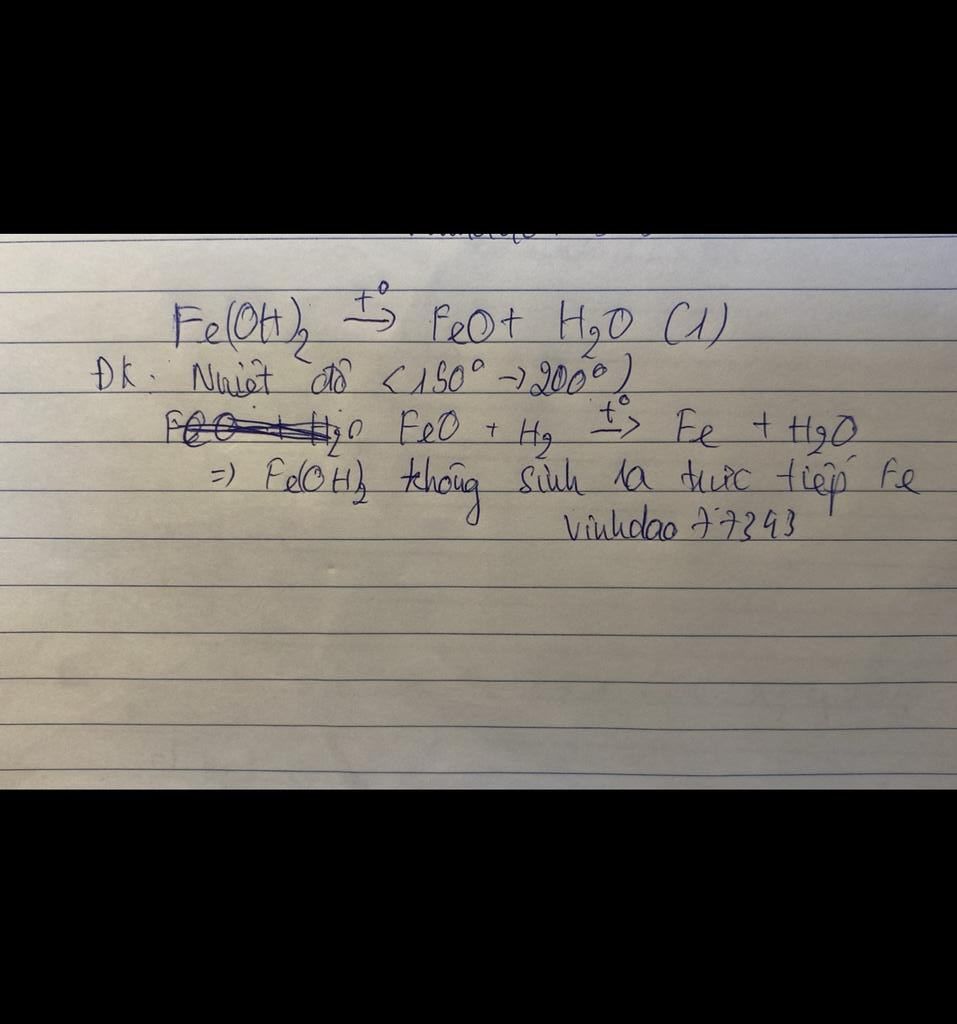 Fe(OH)₂ t° → FeO + H₂O (1)
ĐK. Nhiệt độ (150° → 200°)
FeO + H₂O FeO + H₂ t° → Fe + H₂O
=> Fe(OH)₂ không sinh ra trực tiếp Fe
Vinhdao 77393